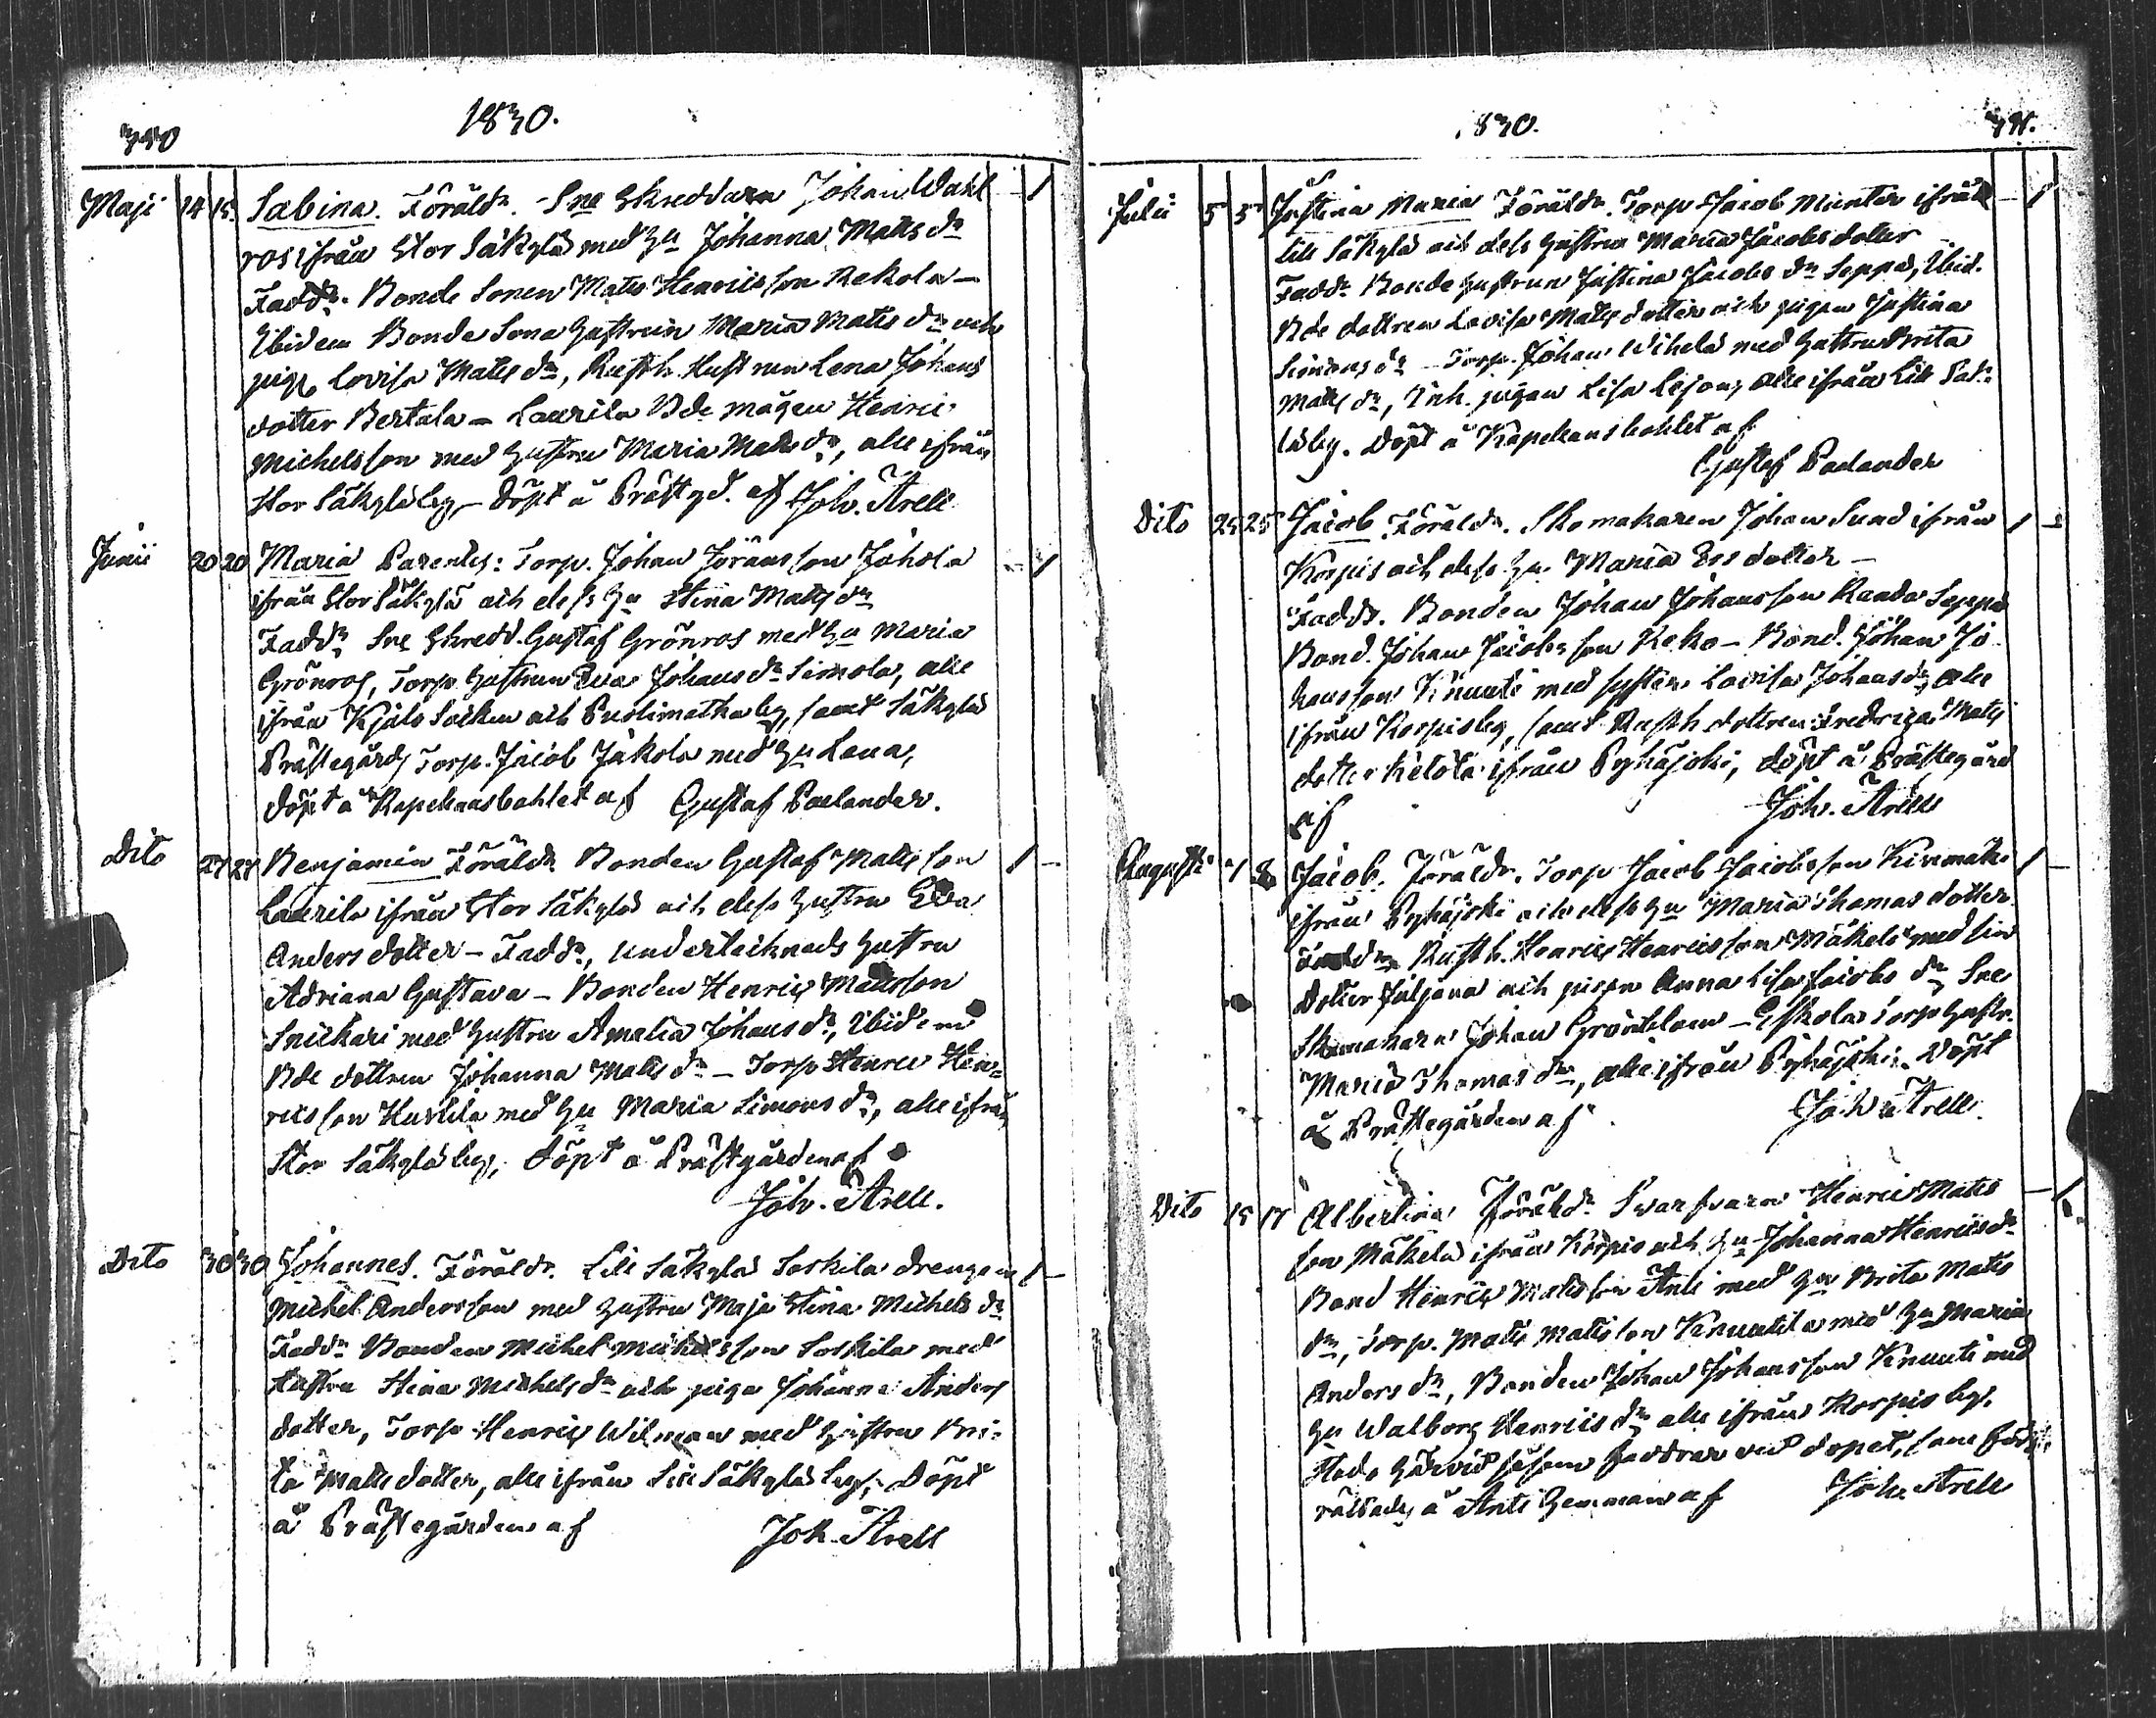 340
1830.
Maji 14 15. Sabina. Föräldr. Sne Skreddaren Johan Wahl 1
ros ifrån Stor Säkylä med Hu Johanna Matts dr
Faddr. Bonde Sonen Matts Henricsson Rekola –
Ibidem Bonde Sona Hustrun Maria Matts dr och
piga Lovisa Matts dr, Rusth. Hustrun Lena Johans
dotter Bertala – Laurila Bde mågen Henric
Michelsson med Hustru Maria Matts dr, alle ifrån
Stor Säkylä by – Döpt å Prästgd. af Joh. Arell
Junii 20 20 Maria Parentes: Torp. Johan Göransson Johola – 1
ifrån Stor Säkylä och dess Hu Stina Matts dr
Faddr Sne Skredd. Gustaf Grönros med Hu Maria
Grönros, Torp. Hustrun Eva Johans dr Simola, alle
ifrån Kjulo Socken och by, samt Säkylä
Prästegårds Torp. Jacob Jäkola med Hu Lena,
döpt å Kapellansbohlet af Gustaf Paelander.
Dito 27 27 Benjamin Föräldr Bonden Gustaf Mattsson 1 –
Laurila ifrån Stor Säkylä och dess Hustru Eva
Anders dotter – Faddr, undertecknads Hustru
Adriana Gustava – Bonden Henric Mattsson
Snickari med Hustru Amalia Johans dr, Ibidem
Bde dottren Johanna Matts dr – Torp Henric Hen=
ricsson med Hu Maria Simons dr, alle ifrån
Stor Säkylä by, döpt å Prästgården af
Joh. Arell.
Dito 30 30 Johannes. Föräldr. Lill Säkylä Soskila drengen 1 –
Michel Andersson med Hustru Maja Stina Michels dr
Faddr Bonden Michel Michelsson Soskila med
Hustru Stina Michels dr och piga Johanna Anders
dotter, Torp Henric Wilman med Hustru Bri=
ta Matts dotter, alle ifrån Lill Säkylä by, Döpt
å Prästegården af Joh. Arell
1830.
341.
Julii 5 5 Justina Maria Föräldr. Torp Jacob Munter ifrån – 1
Lill Säkylä och dess Hustru Maria Jacobs dotter
Faddr Bonde Hustrun Justina Jacobs dr Seppä, Ibid.
Bde dottren Lovisa Matts dotter och pigan Justina
Simons dr – Torp. Johan Wihelä med Hustru Brita
Matts dr, Inh. pigan Lisa Lejon, alle ifrån Lill Säk=
ylä by. Döpt å Kapellansbohlet af
Gustaf Paelander
Dito 25 25 Jacob Föräldr. Skomakaren Johan Sund ifrån 1 –
Korpis och dess Hu Maria Ers dotter –
Faddr. Bonden Johan Johansson Seppä
Bond. Johan Jacobsson Keko – Bond. Johan Jo
hansson Knuuti med syster Lovisa Johans dr alle
ifrån Korpis by, samt Rusth dottren Fredrica Matts
dotter Ketola ifrån Pyhäjoki, döpt å Prästegård
af Joh. Arell
Augusti 7 8 Jacob. Föräldr. Torp Jacob Jacobsson Kivimäki 1 –
ifrån Pyhäjoki och dess Hu Maria Thomas dotter
Faddr Rusth. Henric Henricsson Mäkelä med sin
Dotter Juljana och pigan Anna Lisa Jacobs dr Sne
Skomakarn Johan Grönblom – Eskola Torp Hustr.
Maria Thomas dr, alle ifrån Pyhäjoki. Döpt
å Prästegården af Joh. Arell.
Dito 15 17 Albertina Föräldr Svarfvaren Henric Matts – 1.
son Mäkelä ifrån Korpis och Hu Johanna Henrics dr
Bond Henric Mattsson Anti med Hu Brita Matts
dr, Torp. Matts Mattsson Knuutila med Hu Maria
Anders dr, Bonden Johan Johansson Knuuti med
Hu Walborg Henrics dr alle ifrån Korpis by.
stodo härvid såsom faddrar vid dopet, som för=
rättades å Anti Hemman af Joh. Arell